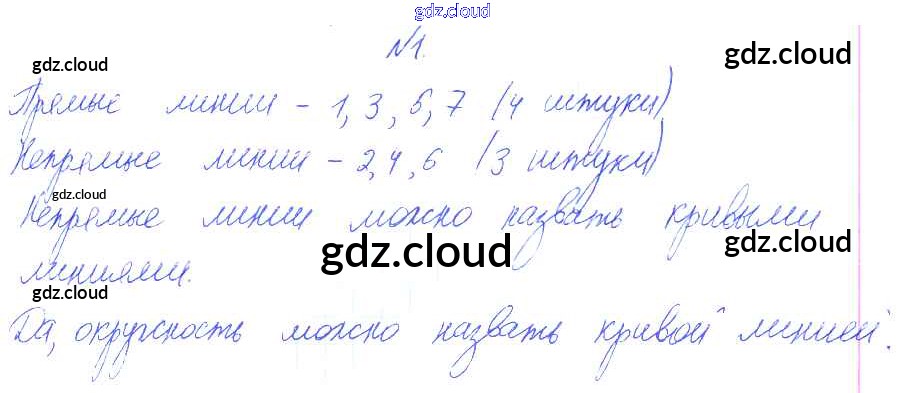 gdz.cloud
№1.
gdz.cloud
gdz.cloud
Прямые линии - 1, 3, 5, 7 (4 штуки)
Непрямые линии - 2, 4, 6 (3 штуки)
gdz.cloud
Непрямые линии можно назвать кривыми
gdz.cloud
gdz.cloud
линиями.
gdz.cloud
gdz.cloud
Да, окружность можно назвать кривой линией.